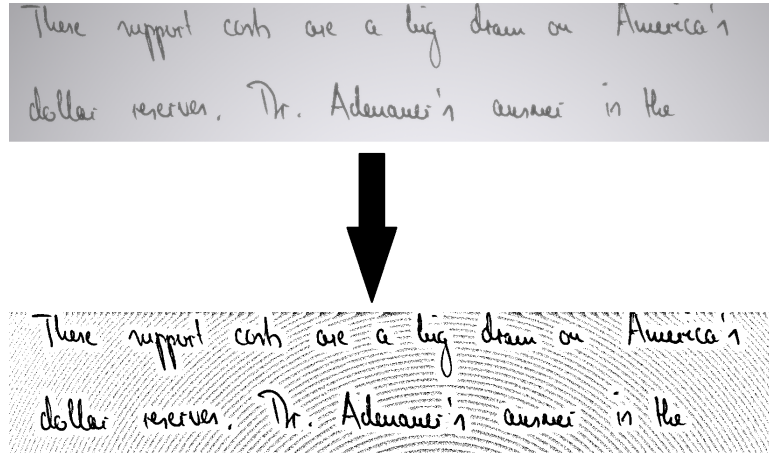 These support costs are a big drain on America's
dollar reserves. Dr. Adenauer's answer is the
These support costs are a big drain on America's
dollar reserves. Dr. Adenauer's answer is the